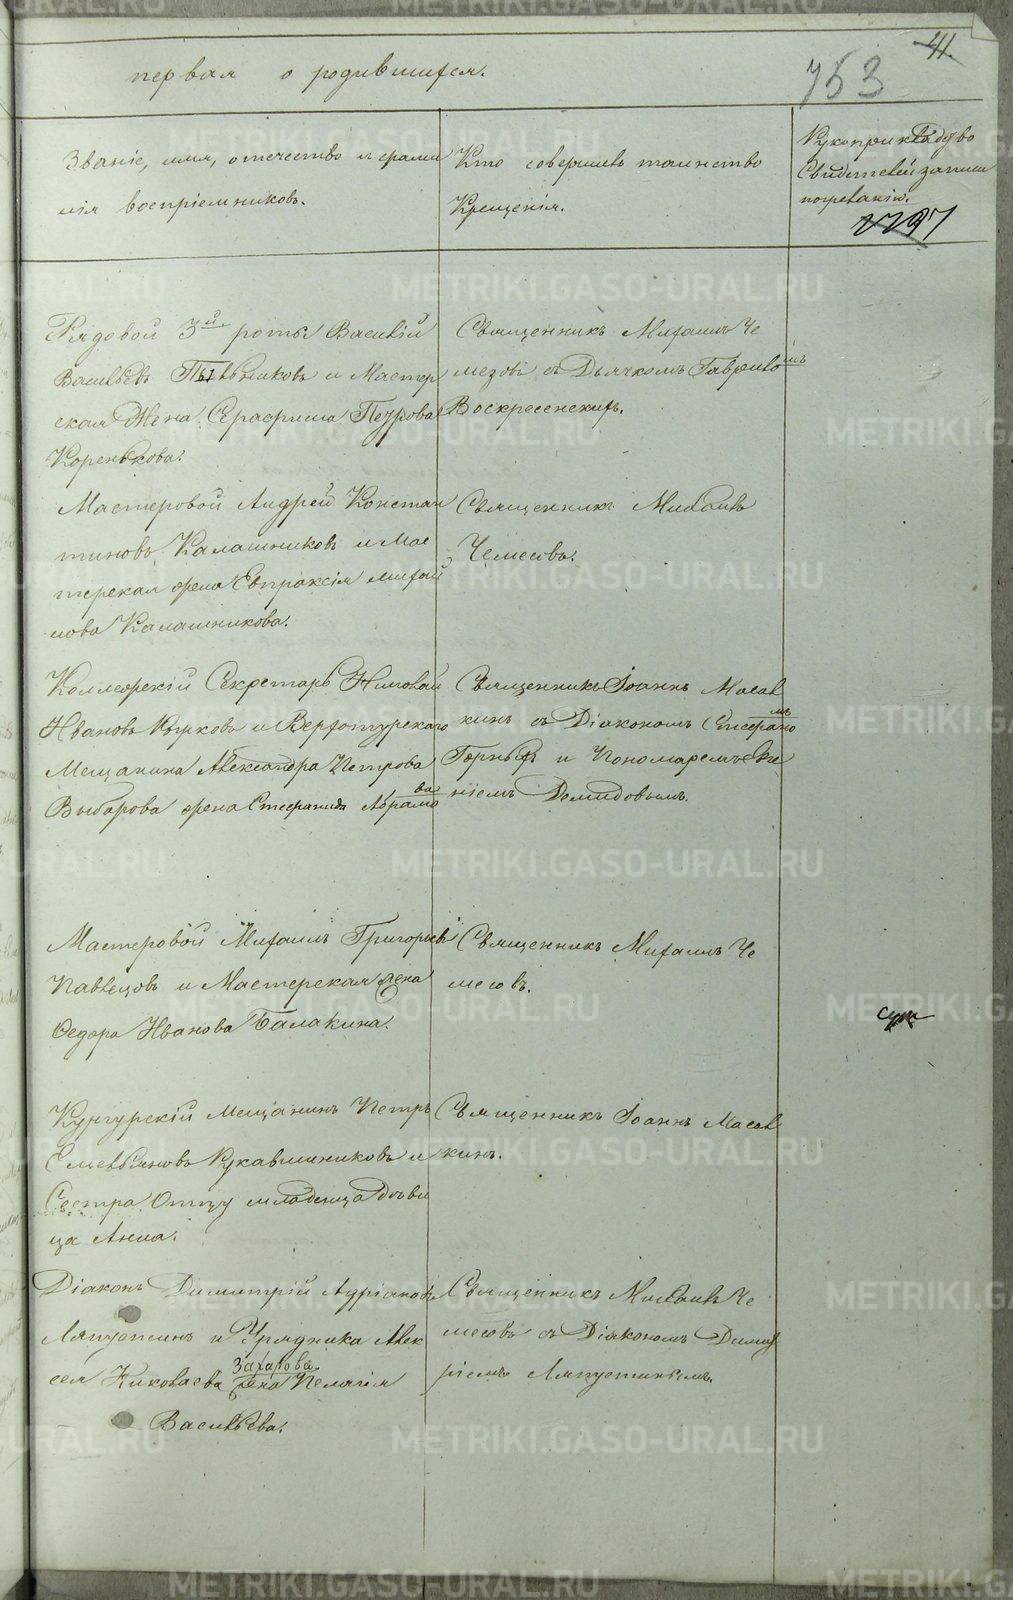 41.
753
первая о родившихся.
Званіе, имя, отечество и фами
лія воспріемниковъ.
Кто совершалъ таинство
Крещенія.
Рукоприкладство
Свидетелей записи
по желанію.
Рядовой 3й роты Василій
Васильевъ и Мастер
ская Жена Серафима Петрова
Коренькова.
Священникъ Михаилъ Че
мезовъ съ Дьячкомъ Гавриломъ
Воскресенскимъ.
Мастеровой Андрей Констан
тиновъ Калашниковъ и Мас
терская жена Евпраксія Михай
лова Калашникова.
Священникъ Михаилъ
Чемесовъ.
Коллежскій Секретарь Николай
Ивановъ и Верхотурскаго
Мещанина Александра Петрова
Выбарова жена Стефанида Абрамова
Священникъ Іоаннъ Масал
кинъ съ Діакономъ Стефаномъ
и Пономаремъ
Демидовымъ.
Мастеровой Михаилъ Григорьевъ
и Мастерская Жена
Федора Иванова Балакина.
Священникъ Михаилъ Че
месовъ.
Кунгурскій Мещанинъ Петръ
Емельяновъ Рукавишниковъ и
Сестра Отцу младенца дѣви
ца Анна.
Священникъ Іоаннъ Масал
кинъ.
Діаконъ Димитрій Адріановъ
Ляпустинъ и Урядника Алек
сея Николаева Захарова жена Пелагія
Васильева.
Священникъ Михаилъ Че
месовъ съ Діакономъ Димит
ріемъ Ляпустинымъ.
METRIKI.GASO-URAL.RU